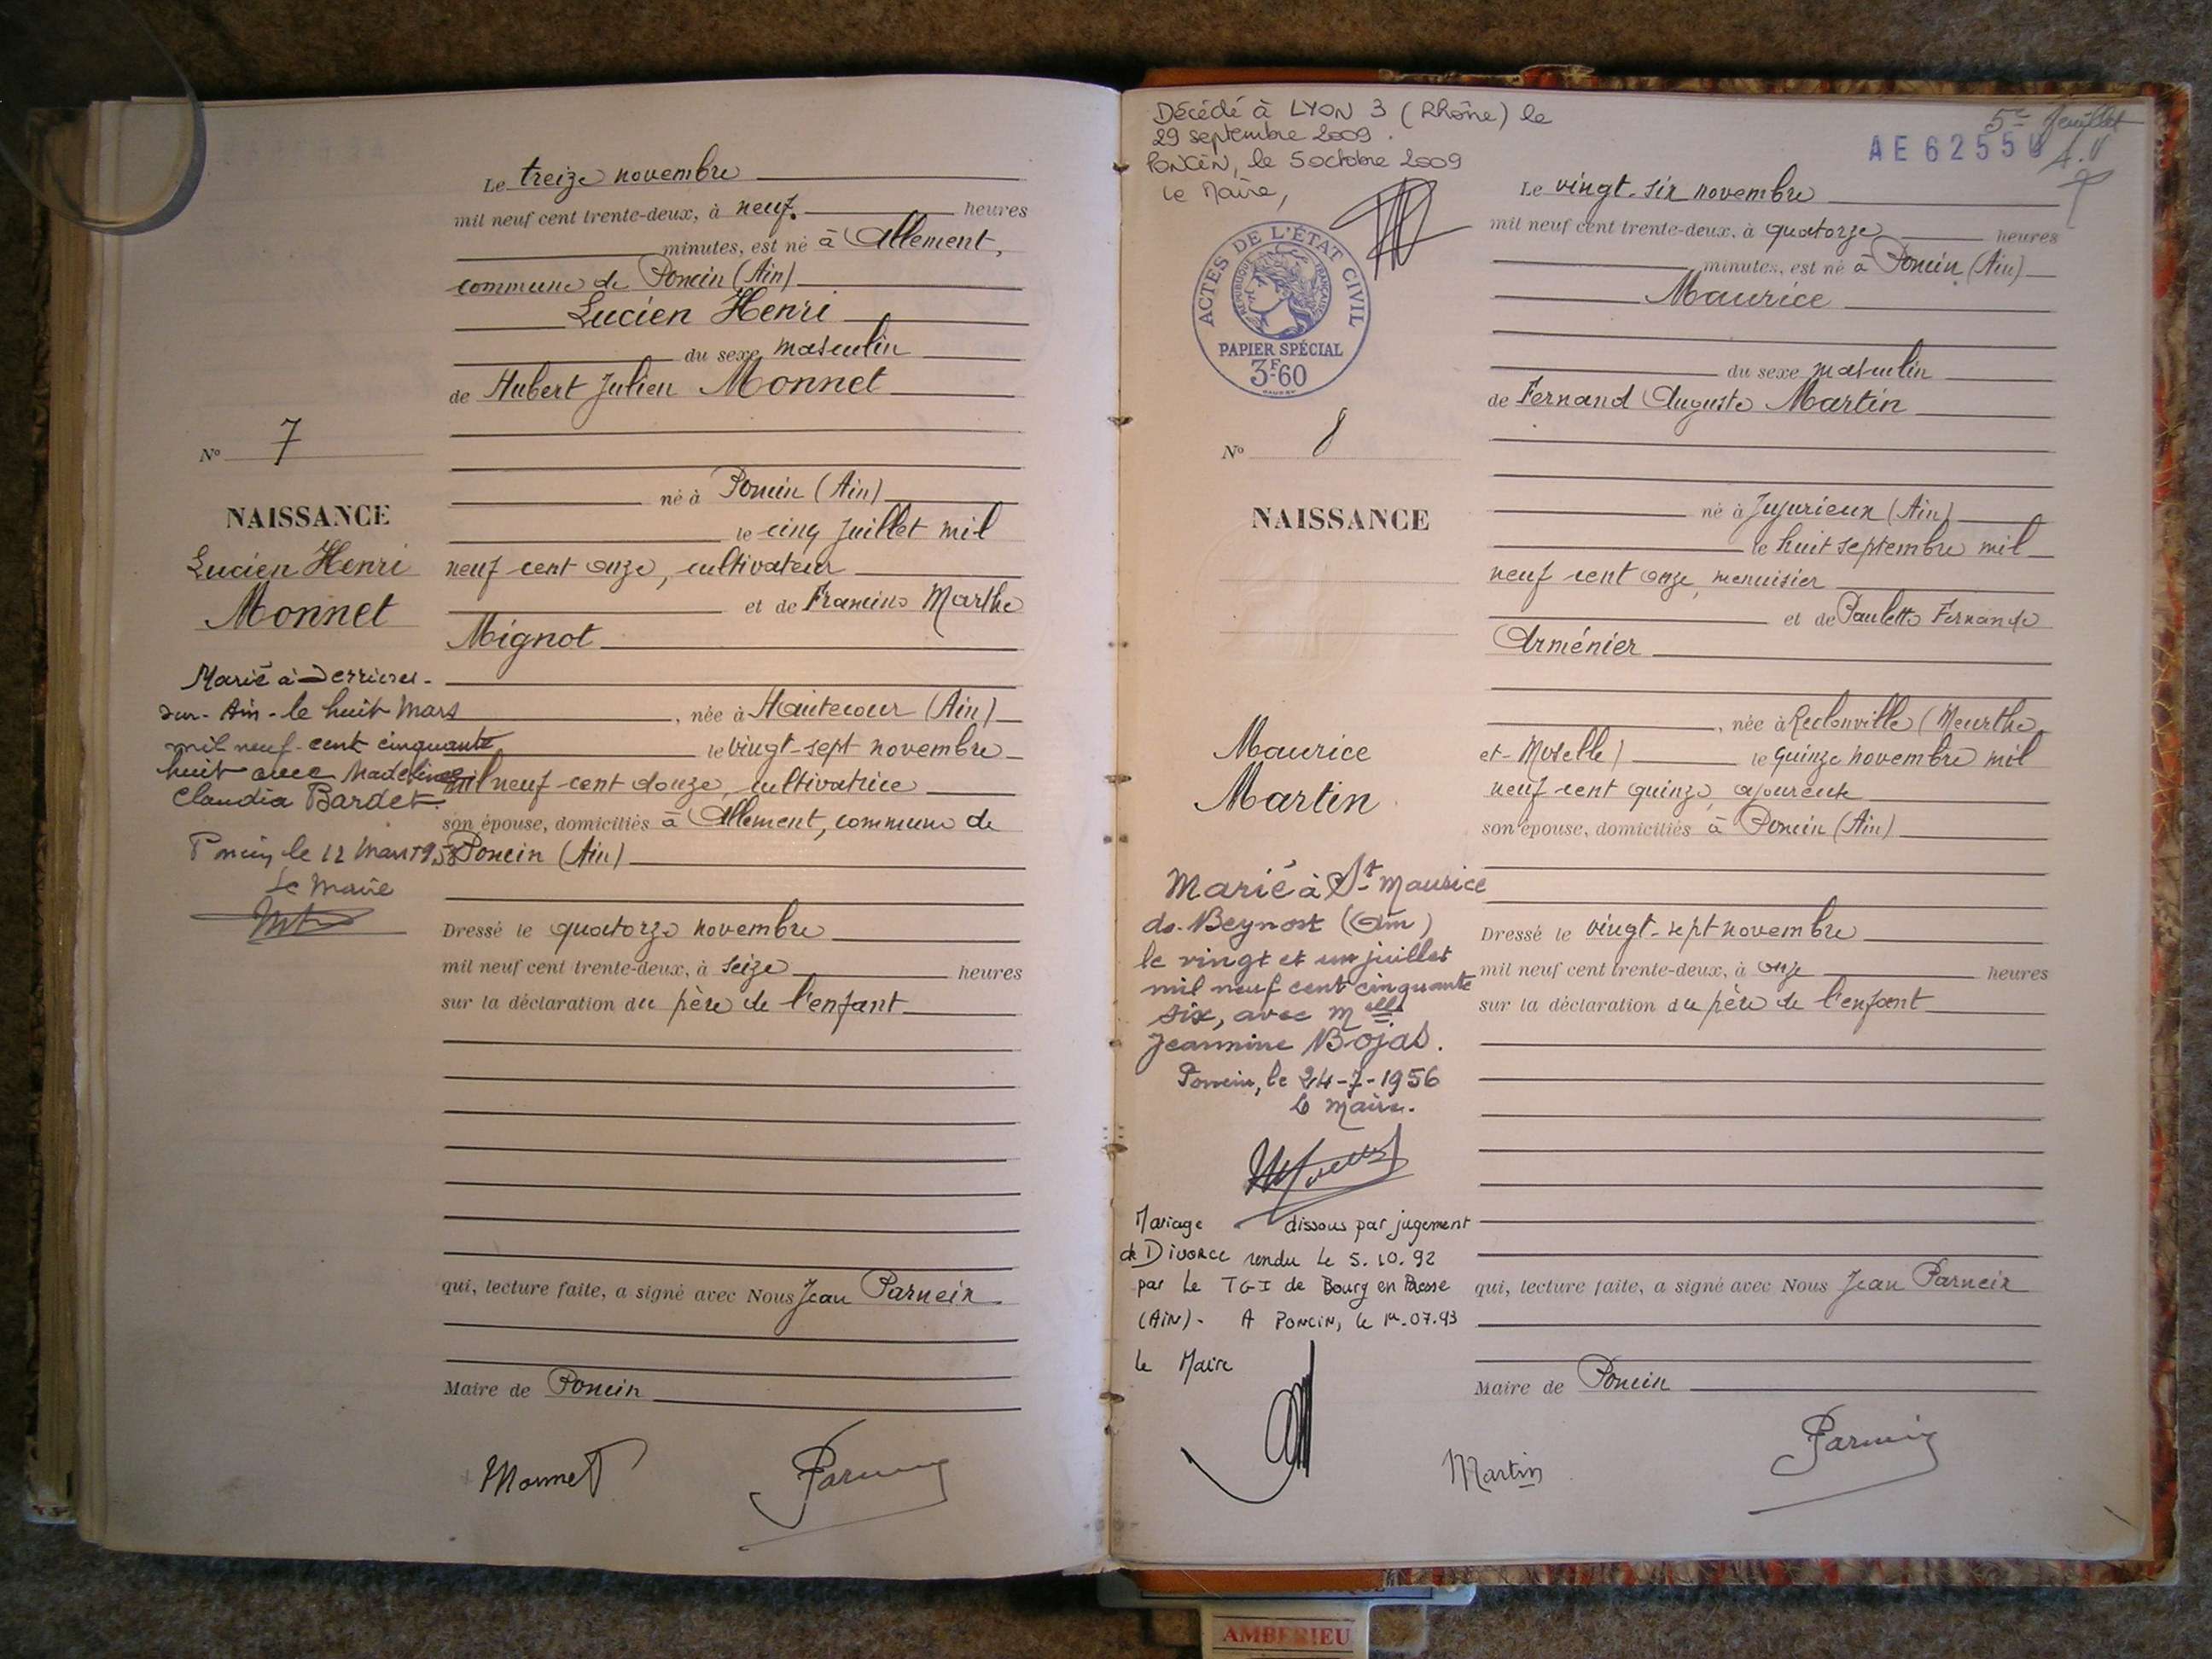 Le treize novembre
mil neuf cent trente-deux, à neuf heures
minutes, est né à Allement,
commune de Poncin (Ain)
Lucien Henri
du sexe masculin
de Hubert Julien Monnet
né à Poncin (Ain)
le cinq juillet mil
neuf cent onze, cultivateur
et de Francine Marthe
Mignot
, née à Hautecour (Ain)
le vingt-sept novembre
mil neuf cent douze, cultivatrice
son épouse, domiciliés à Allement, commune de
Poncin (Ain)
Dressé le quatorze novembre
mil neuf cent trente-deux, à seize heures
sur la déclaration du père de l'enfant
qui, lecture faite, a signé avec Nous Jean Parneix
Maire de Poncin
Monnet
Parneix
No 7
NAISSANCE
Lucien Henri
Monnet
Marié à Serrières-
sur-Ain - le huit Mars
mil neuf-cent cinquante
huit avec Madeleine
Claudia Bardet
Poncin le 12 Mars 1958
Le Maire
Décédé à LYON 3 (Rhône) le
29 septembre 2009.
PONCIN, le 5 octobre 2009
Le Maire,
ACTES DE L'ÉTAT CIVIL
RÉPUBLIQUE FRANÇAISE
PAPIER SPÉCIAL
3F60
No 8
NAISSANCE
Maurice
Martin
Marié à St Maurice
de-Beynost (Ain)
le vingt et un juillet
mil neuf cent cinquante
six, avec Melle
Jeannine Bojas.
Poncin, le 24-7-1956
Le Maire.
Mariage dissous par jugement
de Divorce rendu le 5.10.92
par le TGI de Bourg en Bresse
(AIN). A PONCIN, le 1er.07.93
Le Maire
5e feuillet
AE 6255
Le vingt-six novembre
mil neuf cent trente-deux, à quatorze heures
minutes, est né à Poncin (Ain)
Maurice
du sexe masculin
de Fernand Auguste Martin
né à Jujurieux (Ain)
le huit septembre mil
neuf cent onze, menuisier
et de Paulette Fernande
Arménier
, née à Reclonville (Meurthe
et-Moselle) le quinze novembre mil
neuf cent quinze, ajoureuse
son épouse, domiciliés à Poncin (Ain)
Dressé le vingt-sept novembre
mil neuf cent trente-deux, à onze heures
sur la déclaration du père de l'enfant
qui, lecture faite, a signé avec Nous Jean Parneix
Maire de Poncin
Martin
Parneix
AMBERIEU